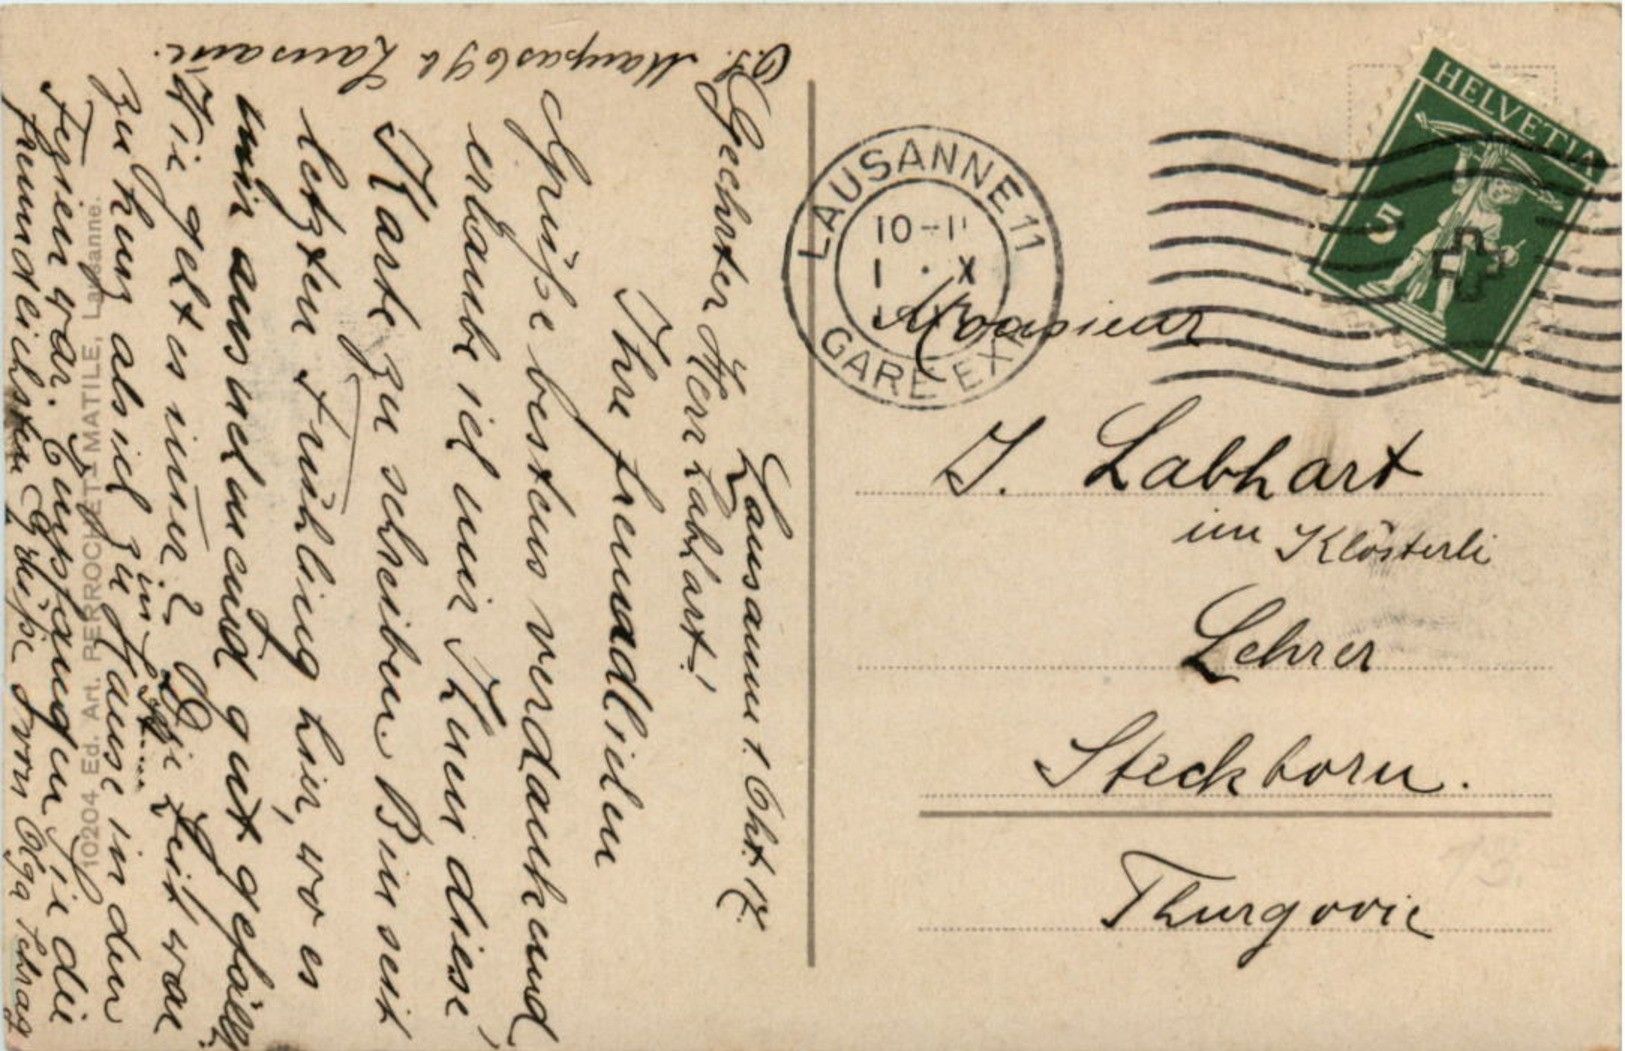 Lausanne 1. Okt. 17.
Geehrter Herr Labhart!
Ihre freundlichen
Grüße bestens verdankend,
erlaube ich mir Ihnen diese
Karte zu schreiben. Bin seit
letzten Frühling hier, wo es
mir ausnehmend gut gefällt.
Wie geht es immer? Die Zeit war
zu kurz als ich zu Hause in den
Ferien war. Empfangen Sie die
freundlichsten Grüße von Olga Schrag
in
10204 Ed. Art. PERROCHET-MATILE, Lausanne.
O.S. Maupas 69 Lausanne.
LAUSANNE 11
10-11
1 · X
GARE EXP
HELVETIA
5
Monsieur
J. Labhart
im Klösterli
Lehrer
Steckborn.
Thurgovie
13.